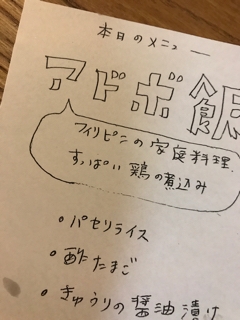 本日のメニュー
アドボ飯
フィリピンの家庭料理
すっぱい鶏の煮込み
• パセリライス
• 酢たまご
• きゅうりの醤油漬け